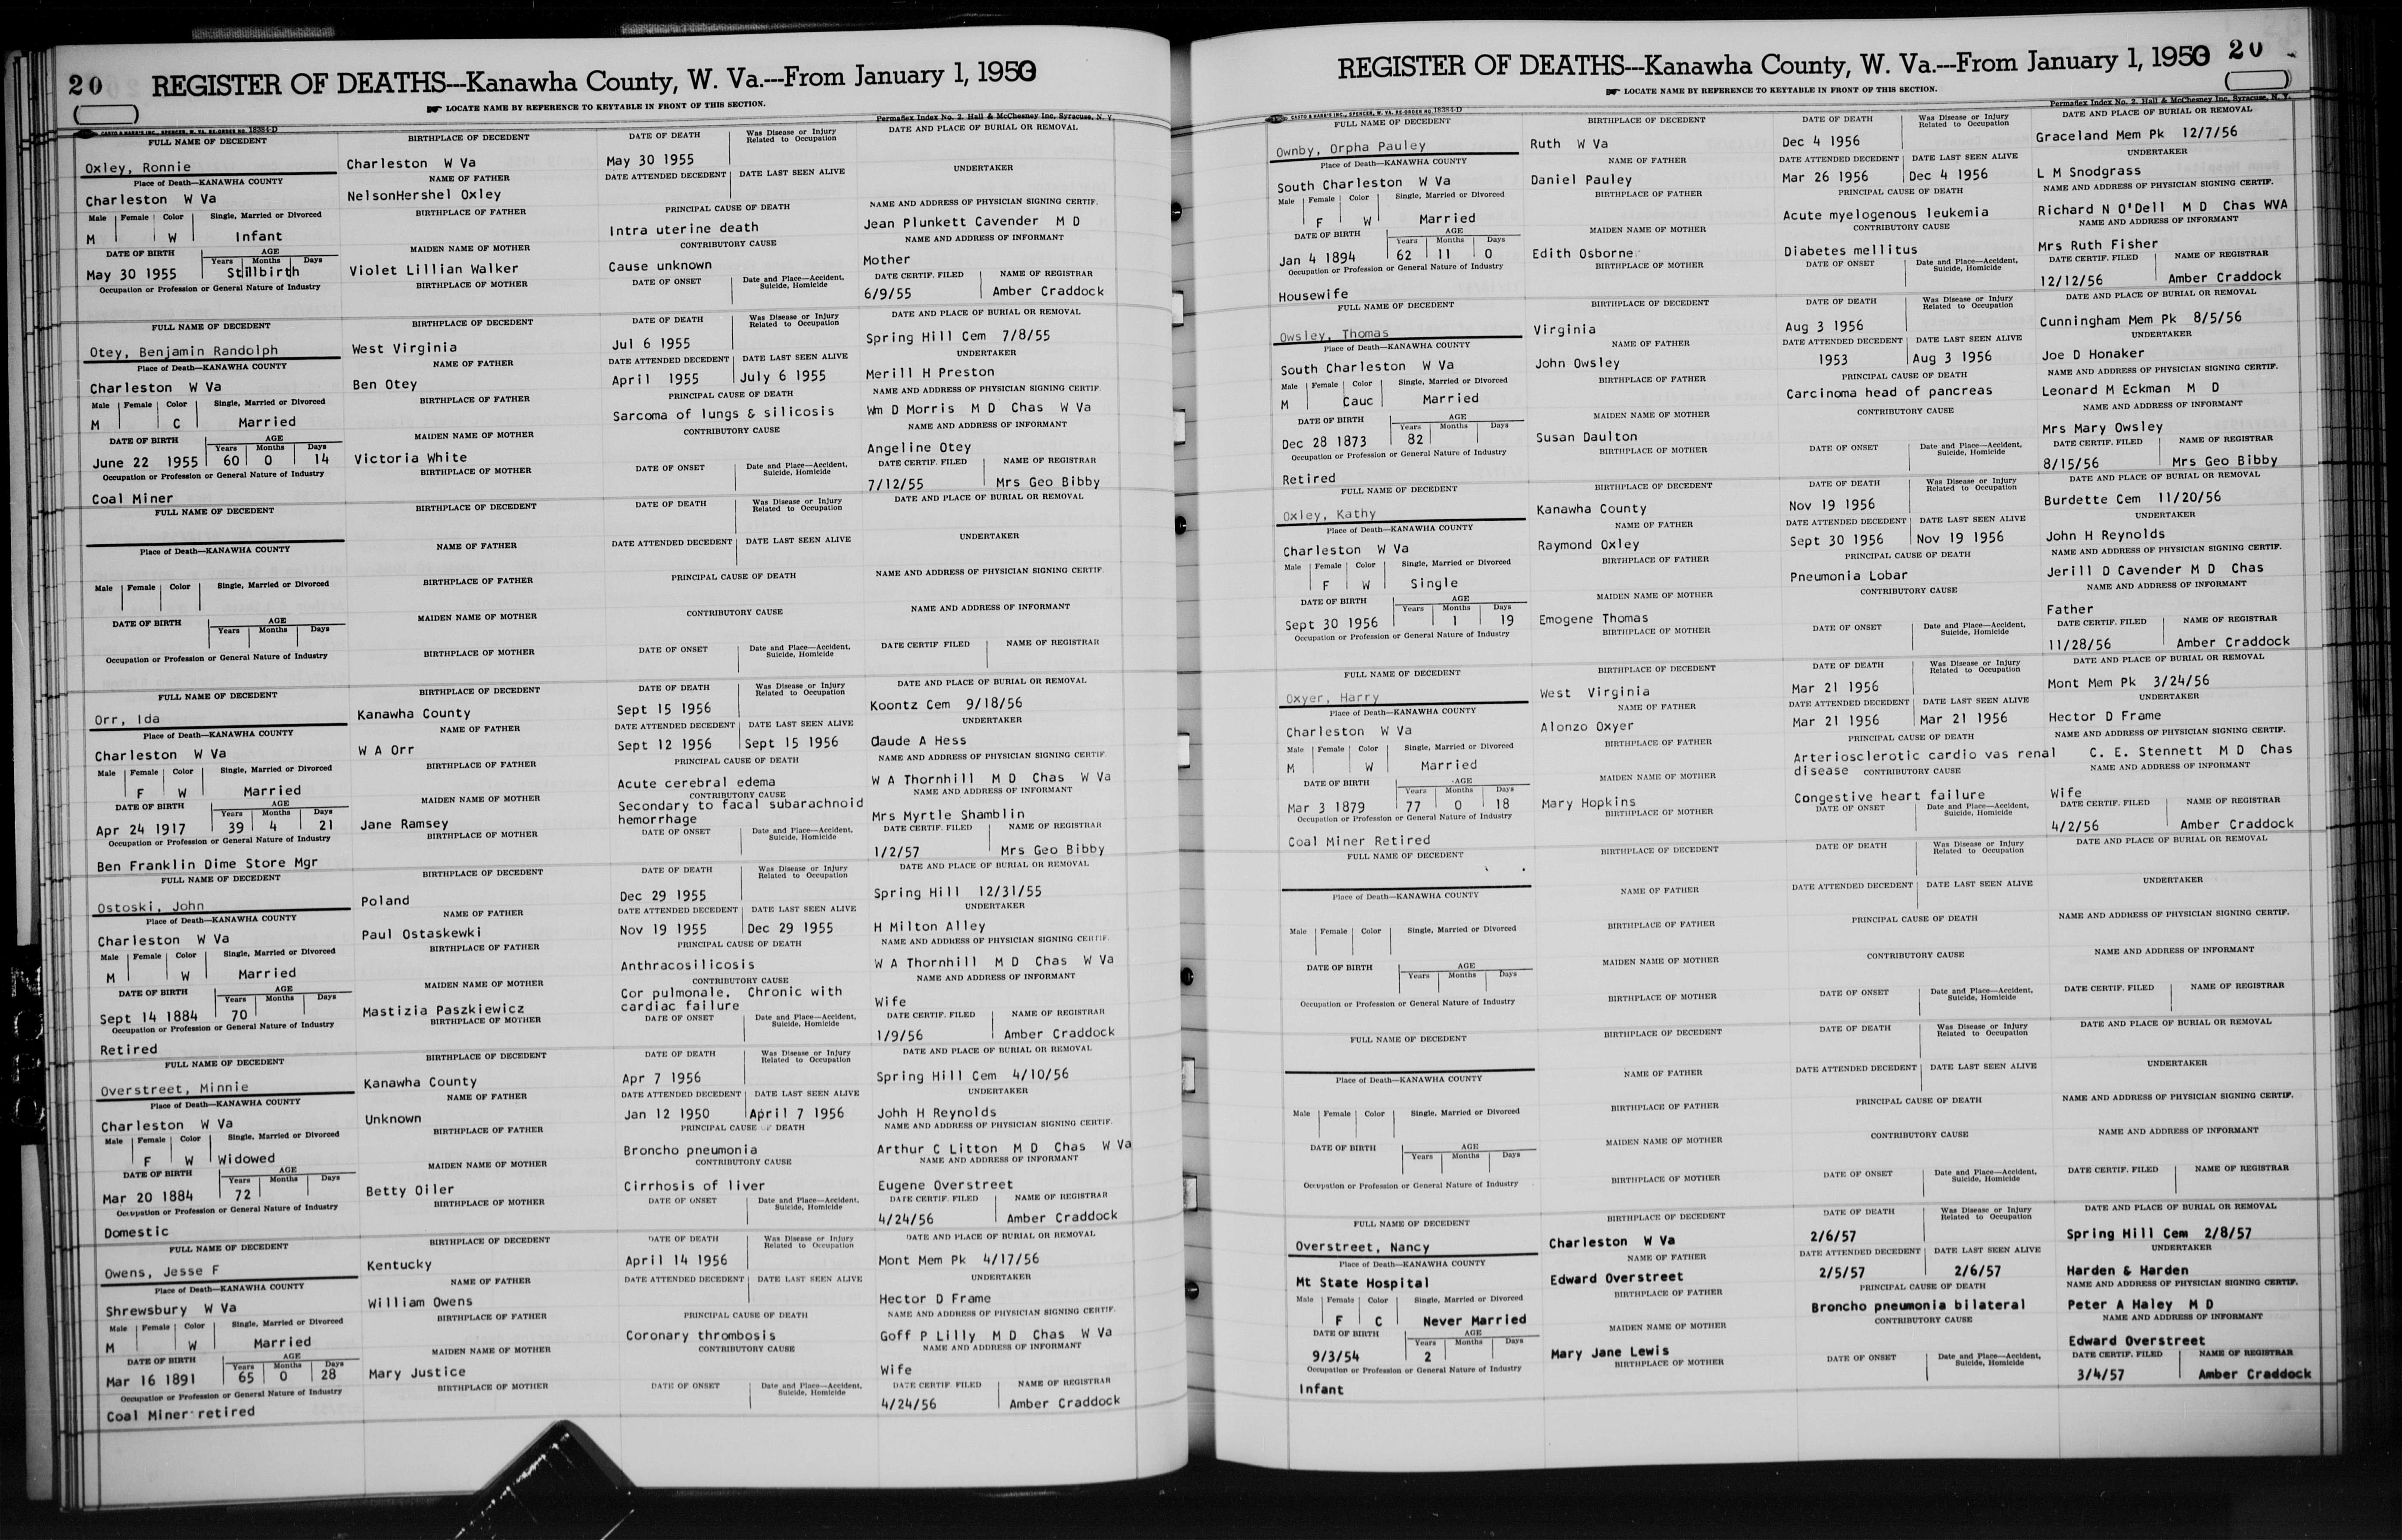 20 REGISTER OF DEATHS---Kanawha County, W. Va.---From January 1, 1950
LOCATE NAME BY REFERENCE TO KEYTABLE IN FRONT OF THIS SECTION.
CASTO & HARRIS INC., SPENCER, W. VA. RE-ORDER NO. 18384-D
Permaflex Index No. 2. Hall & McChesney Inc, Syracuse, N. Y.
FULL NAME OF DECEDENT BIRTHPLACE OF DECEDENT DATE OF DEATH Was Disease or Injury Related to Occupation DATE AND PLACE OF BURIAL OR REMOVAL
Oxley, Ronnie Charleston W Va May 30 1955
Place of Death—KANAWHA COUNTY NAME OF FATHER DATE ATTENDED DECEDENT DATE LAST SEEN ALIVE UNDERTAKER
Charleston W Va NelsonHershel Oxley
Male Female Color Single, Married or Divorced BIRTHPLACE OF FATHER PRINCIPAL CAUSE OF DEATH NAME AND ADDRESS OF PHYSICIAN SIGNING CERTIF.
M W Infant Intra uterine death Jean Plunkett Cavender M D
DATE OF BIRTH AGE Years Months Days MAIDEN NAME OF MOTHER CONTRIBUTORY CAUSE NAME AND ADDRESS OF INFORMANT
May 30 1955 Stillbirth Violet Lillian Walker Cause unknown Mother
Occupation or Profession or General Nature of Industry BIRTHPLACE OF MOTHER DATE OF ONSET Date and Place—Accident, Suicide, Homicide DATE CERTIF. FILED NAME OF REGISTRAR
6/9/55 Amber Craddock
FULL NAME OF DECEDENT BIRTHPLACE OF DECEDENT DATE OF DEATH Was Disease or Injury Related to Occupation DATE AND PLACE OF BURIAL OR REMOVAL
Otey, Benjamin Randolph West Virginia Jul 6 1955 Spring Hill Cem 7/8/55
Place of Death—KANAWHA COUNTY NAME OF FATHER DATE ATTENDED DECEDENT DATE LAST SEEN ALIVE UNDERTAKER
Charleston W Va Ben Otey April 1955 July 6 1955 Merill H Preston
Male Female Color Single, Married or Divorced BIRTHPLACE OF FATHER PRINCIPAL CAUSE OF DEATH NAME AND ADDRESS OF PHYSICIAN SIGNING CERTIF.
M C Married Sarcoma of lungs & silicosis Wm D Morris M D Chas W Va
DATE OF BIRTH AGE Years Months Days MAIDEN NAME OF MOTHER CONTRIBUTORY CAUSE NAME AND ADDRESS OF INFORMANT
June 22 1955 60 0 14 Victoria White Angeline Otey
Occupation or Profession or General Nature of Industry BIRTHPLACE OF MOTHER DATE OF ONSET Date and Place—Accident, Suicide, Homicide DATE CERTIF. FILED NAME OF REGISTRAR
Coal Miner 7/12/55 Mrs Geo Bibby
FULL NAME OF DECEDENT BIRTHPLACE OF DECEDENT DATE OF DEATH Was Disease or Injury Related to Occupation DATE AND PLACE OF BURIAL OR REMOVAL
Place of Death—KANAWHA COUNTY NAME OF FATHER DATE ATTENDED DECEDENT DATE LAST SEEN ALIVE UNDERTAKER
Male Female Color Single, Married or Divorced BIRTHPLACE OF FATHER PRINCIPAL CAUSE OF DEATH NAME AND ADDRESS OF PHYSICIAN SIGNING CERTIF.
DATE OF BIRTH AGE Years Months Days MAIDEN NAME OF MOTHER CONTRIBUTORY CAUSE NAME AND ADDRESS OF INFORMANT
Occupation or Profession or General Nature of Industry BIRTHPLACE OF MOTHER DATE OF ONSET Date and Place—Accident, Suicide, Homicide DATE CERTIF FILED NAME OF REGISTRAR
FULL NAME OF DECEDENT BIRTHPLACE OF DECEDENT DATE OF DEATH Was Disease or Injury Related to Occupation DATE AND PLACE OF BURIAL OR REMOVAL
Orr, Ida Kanawha County Sept 15 1956 Koontz Cem 9/18/56
Place of Death—KANAWHA COUNTY NAME OF FATHER DATE ATTENDED DECEDENT DATE LAST SEEN ALIVE UNDERTAKER
Charleston W Va W A Orr Sept 12 1956 Sept 15 1956 Claude A Hess
Male Female Color Single, Married or Divorced BIRTHPLACE OF FATHER PRINCIPAL CAUSE OF DEATH NAME AND ADDRESS OF PHYSICIAN SIGNING CERTIF.
F W Married Acute cerebral edema W A Thornhill M D Chas W Va
DATE OF BIRTH AGE Years Months Days MAIDEN NAME OF MOTHER CONTRIBUTORY CAUSE NAME AND ADDRESS OF INFORMANT
Apr 24 1917 39 4 21 Jane Ramsey Secondary to facal subarachnoid hemorrhage Mrs Myrtle Shamblin
Occupation or Profession or General Nature of Industry BIRTHPLACE OF MOTHER DATE OF ONSET Date and Place—Accident, Suicide, Homicide DATE CERTIF. FILED NAME OF REGISTRAR
Ben Franklin Dime Store Mgr 1/2/57 Mrs Geo Bibby
FULL NAME OF DECEDENT BIRTHPLACE OF DECEDENT DATE OF DEATH Was Disease or Injury Related to Occupation DATE AND PLACE OF BURIAL OR REMOVAL
Ostoski, John Poland Dec 29 1955 Spring Hill 12/31/55
Place of Death—KANAWHA COUNTY NAME OF FATHER DATE ATTENDED DECEDENT DATE LAST SEEN ALIVE UNDERTAKER
Charleston W Va Paul Ostaskewki Nov 19 1955 Dec 29 1955 H Milton Alley
Male Female Color Single, Married or Divorced BIRTHPLACE OF FATHER PRINCIPAL CAUSE OF DEATH NAME AND ADDRESS OF PHYSICIAN SIGNING CERTIF.
M W Married Anthracosilicosis W A Thornhill M D Chas W Va
DATE OF BIRTH AGE Years Months Days MAIDEN NAME OF MOTHER CONTRIBUTORY CAUSE NAME AND ADDRESS OF INFORMANT
Sept 14 1884 70 Mastizia Paszkiewicz Cor pulmonale. Chronic with cardiac failure Wife
Occupation or Profession or General Nature of Industry BIRTHPLACE OF MOTHER DATE OF ONSET Date and Place—Accident, Suicide, Homicide DATE CERTIF. FILED NAME OF REGISTRAR
Retired 1/9/56 Amber Craddock
FULL NAME OF DECEDENT BIRTHPLACE OF DECEDENT DATE OF DEATH Was Disease or Injury Related to Occupation DATE AND PLACE OF BURIAL OR REMOVAL
Overstreet, Minnie Kanawha County Apr 7 1956 Spring Hill Cem 4/10/56
Place of Death—KANAWHA COUNTY NAME OF FATHER DATE ATTENDED DECEDENT DATE LAST SEEN ALIVE UNDERTAKER
Charleston W Va Unknown Jan 12 1950 April 7 1956 Johh H Reynolds
Male Female Color Single, Married or Divorced BIRTHPLACE OF FATHER PRINCIPAL CAUSE OF DEATH NAME AND ADDRESS OF PHYSICIAN SIGNING CERTIF.
F W Widowed Broncho pneumonia Arthur C Litton M D Chas W Va
DATE OF BIRTH AGE Years Months Days MAIDEN NAME OF MOTHER CONTRIBUTORY CAUSE NAME AND ADDRESS OF INFORMANT
Mar 20 1884 72 Betty Oiler Cirrhosis of liver Eugene Overstreet
Occupation or Profession or General Nature of Industry BIRTHPLACE OF MOTHER DATE OF ONSET Date and Place—Accident, Suicide, Homicide DATE CERTIF. FILED NAME OF REGISTRAR
Domestic 4/24/56 Amber Craddock
FULL NAME OF DECEDENT BIRTHPLACE OF DECEDENT DATE OF DEATH Was Disease or Injury Related to Occupation DATE AND PLACE OF BURIAL OR REMOVAL
Owens, Jesse F Kentucky April 14 1956 Mont Mem Pk 4/17/56
Place of Death—KANAWHA COUNTY NAME OF FATHER DATE ATTENDED DECEDENT DATE LAST SEEN ALIVE UNDERTAKER
Shrewsbury W Va William Owens Hector D Frame
Male Female Color Single, Married or Divorced BIRTHPLACE OF FATHER PRINCIPAL CAUSE OF DEATH NAME AND ADDRESS OF PHYSICIAN SIGNING CERTIF.
M W Married Coronary thrombosis Goff P Lilly M D Chas W Va
DATE OF BIRTH AGE Years Months Days MAIDEN NAME OF MOTHER CONTRIBUTORY CAUSE NAME AND ADDRESS OF INFORMANT
Mar 16 1891 65 0 28 Mary Justice Wife
Occupation or Profession or General Nature of Industry BIRTHPLACE OF MOTHER DATE OF ONSET Date and Place—Accident, Suicide, Homicide DATE CERTIF. FILED NAME OF REGISTRAR
Coal Miner retired 4/24/56 Amber Craddock
REGISTER OF DEATHS---Kanawha County, W. Va.---From January 1, 1950 20
LOCATE NAME BY REFERENCE TO KEYTABLE IN FRONT OF THIS SECTION.
CASTO & HARRIS INC., SPENCER, W. VA. RE-ORDER NO. 18384-D
Permaflex Index No. 2. Hall & McChesney Inc, Syracuse, N. Y.
FULL NAME OF DECEDENT BIRTHPLACE OF DECEDENT DATE OF DEATH Was Disease or Injury Related to Occupation DATE AND PLACE OF BURIAL OR REMOVAL
Ownby, Orpha Pauley Ruth W Va Dec 4 1956 Graceland Mem Pk 12/7/56
Place of Death—KANAWHA COUNTY NAME OF FATHER DATE ATTENDED DECEDENT DATE LAST SEEN ALIVE UNDERTAKER
South Charleston W Va Daniel Pauley Mar 26 1956 Dec 4 1956 L M Snodgrass
Male Female Color Single, Married or Divorced BIRTHPLACE OF FATHER PRINCIPAL CAUSE OF DEATH NAME AND ADDRESS OF PHYSICIAN SIGNING CERTIF.
F W Married Acute myelogenous leukemia Richard N O'Dell M D Chas WVA
DATE OF BIRTH AGE Years Months Days MAIDEN NAME OF MOTHER CONTRIBUTORY CAUSE NAME AND ADDRESS OF INFORMANT
Jan 4 1894 62 11 0 Edith Osborne Diabetes mellitus Mrs Ruth Fisher
Occupation or Profession or General Nature of Industry BIRTHPLACE OF MOTHER DATE OF ONSET Date and Place—Accident, Suicide, Homicide DATE CERTIF. FILED NAME OF REGISTRAR
Housewife 12/12/56 Amber Craddock
FULL NAME OF DECEDENT BIRTHPLACE OF DECEDENT DATE OF DEATH Was Disease or Injury Related to Occupation DATE AND PLACE OF BURIAL OR REMOVAL
Owsley, Thomas Virginia Aug 3 1956 Cunningham Mem Pk 8/5/56
Place of Death—KANAWHA COUNTY NAME OF FATHER DATE ATTENDED DECEDENT DATE LAST SEEN ALIVE UNDERTAKER
South Charleston W Va John Owsley 1953 Aug 3 1956 Joe D Honaker
Male Female Color Single, Married or Divorced BIRTHPLACE OF FATHER PRINCIPAL CAUSE OF DEATH NAME AND ADDRESS OF PHYSICIAN SIGNING CERTIF.
M Cauc Married Carcinoma head of pancreas Leonard M Eckman M D
DATE OF BIRTH AGE Years Months Days MAIDEN NAME OF MOTHER CONTRIBUTORY CAUSE NAME AND ADDRESS OF INFORMANT
Dec 28 1873 82 Susan Daulton Mrs Mary Owsley
Occupation or Profession or General Nature of Industry BIRTHPLACE OF MOTHER DATE OF ONSET Date and Place—Accident, Suicide, Homicide DATE CERTIF. FILED NAME OF REGISTRAR
Retired 8/15/56 Mrs Geo Bibby
FULL NAME OF DECEDENT BIRTHPLACE OF DECEDENT DATE OF DEATH Was Disease or Injury Related to Occupation DATE AND PLACE OF BURIAL OR REMOVAL
Oxley, Kathy Kanawha County Nov 19 1956 Burdette Cem 11/20/56
Place of Death—KANAWHA COUNTY NAME OF FATHER DATE ATTENDED DECEDENT DATE LAST SEEN ALIVE UNDERTAKER
Charleston W Va Raymond Oxley Sept 30 1956 Nov 19 1956 John H Reynolds
Male Female Color Single, Married or Divorced BIRTHPLACE OF FATHER PRINCIPAL CAUSE OF DEATH NAME AND ADDRESS OF PHYSICIAN SIGNING CERTIF.
F W Single Pneumonia Lobar Jerill D Cavender M D Chas
DATE OF BIRTH AGE Years Months Days MAIDEN NAME OF MOTHER CONTRIBUTORY CAUSE NAME AND ADDRESS OF INFORMANT
Sept 30 1956 1 19 Emogene Thomas Father
Occupation or Profession or General Nature of Industry BIRTHPLACE OF MOTHER DATE OF ONSET Date and Place—Accident, Suicide, Homicide DATE CERTIF. FILED NAME OF REGISTRAR
11/28/56 Amber Craddock
FULL NAME OF DECEDENT BIRTHPLACE OF DECEDENT DATE OF DEATH Was Disease or Injury Related to Occupation DATE AND PLACE OF BURIAL OR REMOVAL
Oxyer, Harry West Virginia Mar 21 1956 Mont Mem Pk 3/24/56
Place of Death—KANAWHA COUNTY NAME OF FATHER DATE ATTENDED DECEDENT DATE LAST SEEN ALIVE UNDERTAKER
Charleston W Va Alonzo Oxyer Mar 21 1956 Mar 21 1956 Hector D Frame
Male Female Color Single, Married or Divorced BIRTHPLACE OF FATHER PRINCIPAL CAUSE OF DEATH NAME AND ADDRESS OF PHYSICIAN SIGNING CERTIF.
M W Married Arteriosclerotic cardio vas renal disease C. E. Stennett M D Chas
DATE OF BIRTH AGE Years Months Days MAIDEN NAME OF MOTHER CONTRIBUTORY CAUSE NAME AND ADDRESS OF INFORMANT
Mar 3 1879 77 0 18 Mary Hopkins Congestive heart failure Wife
Occupation or Profession or General Nature of Industry BIRTHPLACE OF MOTHER DATE OF ONSET Date and Place—Accident, Suicide, Homicide DATE CERTIF. FILED NAME OF REGISTRAR
Coal Miner Retired 4/2/56 Amber Craddock
FULL NAME OF DECEDENT BIRTHPLACE OF DECEDENT DATE OF DEATH Was Disease or Injury Related to Occupation DATE AND PLACE OF BURIAL OR REMOVAL
Place of Death—KANAWHA COUNTY NAME OF FATHER DATE ATTENDED DECEDENT DATE LAST SEEN ALIVE UNDERTAKER
Male Female Color Single, Married or Divorced BIRTHPLACE OF FATHER PRINCIPAL CAUSE OF DEATH NAME AND ADDRESS OF PHYSICIAN SIGNING CERTIF.
DATE OF BIRTH AGE Years Months Days MAIDEN NAME OF MOTHER CONTRIBUTORY CAUSE NAME AND ADDRESS OF INFORMANT
Occupation or Profession or General Nature of Industry BIRTHPLACE OF MOTHER DATE OF ONSET Date and Place—Accident, Suicide, Homicide DATE CERTIF. FILED NAME OF REGISTRAR
FULL NAME OF DECEDENT BIRTHPLACE OF DECEDENT DATE OF DEATH Was Disease or Injury Related to Occupation DATE AND PLACE OF BURIAL OR REMOVAL
Place of Death—KANAWHA COUNTY NAME OF FATHER DATE ATTENDED DECEDENT DATE LAST SEEN ALIVE UNDERTAKER
Male Female Color Single, Married or Divorced BIRTHPLACE OF FATHER PRINCIPAL CAUSE OF DEATH NAME AND ADDRESS OF PHYSICIAN SIGNING CERTIF.
DATE OF BIRTH AGE Years Months Days MAIDEN NAME OF MOTHER CONTRIBUTORY CAUSE NAME AND ADDRESS OF INFORMANT
Occupation or Profession or General Nature of Industry BIRTHPLACE OF MOTHER DATE OF ONSET Date and Place—Accident, Suicide, Homicide DATE CERTIF. FILED NAME OF REGISTRAR
FULL NAME OF DECEDENT BIRTHPLACE OF DECEDENT DATE OF DEATH Was Disease or Injury Related to Occupation DATE AND PLACE OF BURIAL OR REMOVAL
Overstreet, Nancy Charleston W Va 2/6/57 Spring Hill Cem 2/8/57
Place of Death—KANAWHA COUNTY NAME OF FATHER DATE ATTENDED DECEDENT DATE LAST SEEN ALIVE UNDERTAKER
Mt State Hospital Edward Overstreet 2/5/57 2/6/57 Harden & Harden
Male Female Color Single, Married or Divorced BIRTHPLACE OF FATHER PRINCIPAL CAUSE OF DEATH NAME AND ADDRESS OF PHYSICIAN SIGNING CERTIF.
F C Never Married Broncho pneumonia bilateral Peter A Haley M D
DATE OF BIRTH AGE Years Months Days MAIDEN NAME OF MOTHER CONTRIBUTORY CAUSE NAME AND ADDRESS OF INFORMANT
9/3/54 2 Mary Jane Lewis Edward Overstreet
Occupation or Profession or General Nature of Industry BIRTHPLACE OF MOTHER DATE OF ONSET Date and Place—Accident, Suicide, Homicide DATE CERTIF. FILED NAME OF REGISTRAR
Infant 3/4/57 Amber Craddock